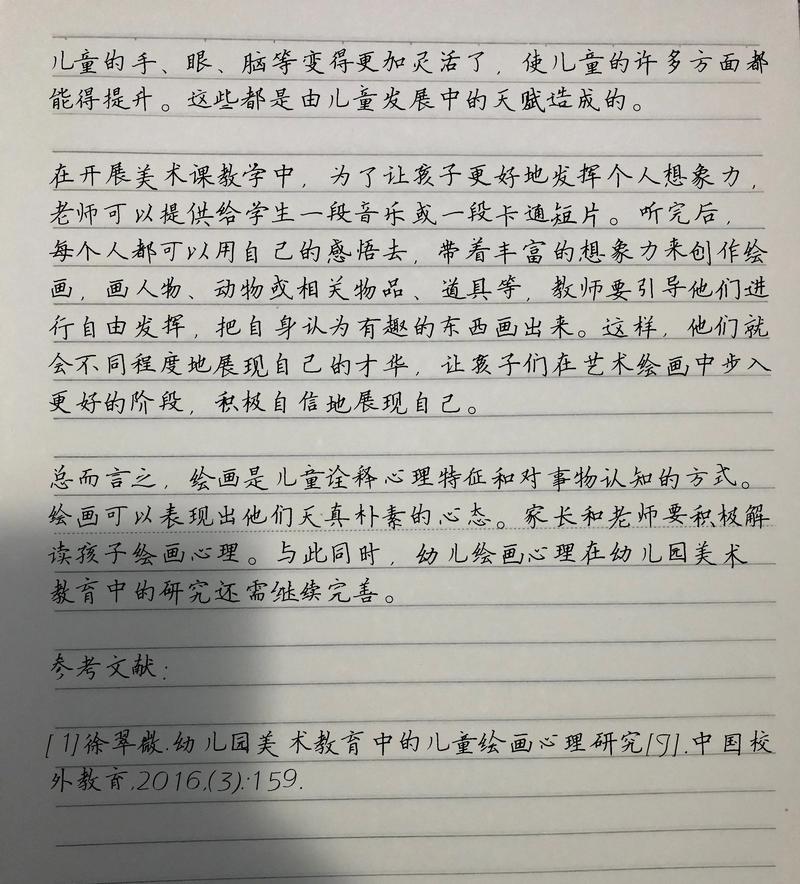 儿童的手、眼、脑等变得更加灵活了，使儿童的许多方面都
能得提升。这些都是由儿童发展中的天赋造成的。
在开展美术课教学中，为了让孩子更好地发挥个人想象力，
老师可以提供给学生一段音乐或一段卡通短片。听完后，
每个人都可以用自己的感悟去，带着丰富的想象力来创作绘
画，画人物、动物或相关物品、道具等，教师要引导他们进
行自由发挥，把自身认为有趣的东西画出来。这样，他们就
会不同程度地展现自己的才华，让孩子们在艺术绘画中步入
更好的阶段，积极自信地展现自己。
总而言之，绘画是儿童诠释心理特征和对事物认知的方式。
绘画可以表现出他们天真朴素的心态。家长和老师要积极解
读孩子绘画心理。与此同时，幼儿绘画心理在幼儿园美术
教育中的研究还需继续完善。
参考文献：
[1]徐翠微.幼儿园美术教育中的儿童绘画心理研究[J].中国校
外教育,2016,(3):159.